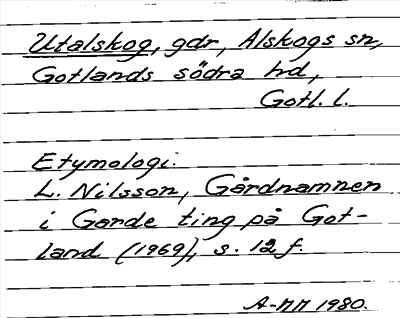 Utalskog, gdr, Alskogs sn,
Gotlands södra hd,
Gotl. l.
Etymologi.
L. Nilsson, Gårdnamnen
i Garde ting på Got-
land (1969), s. 12 f.
A-NN 1980.